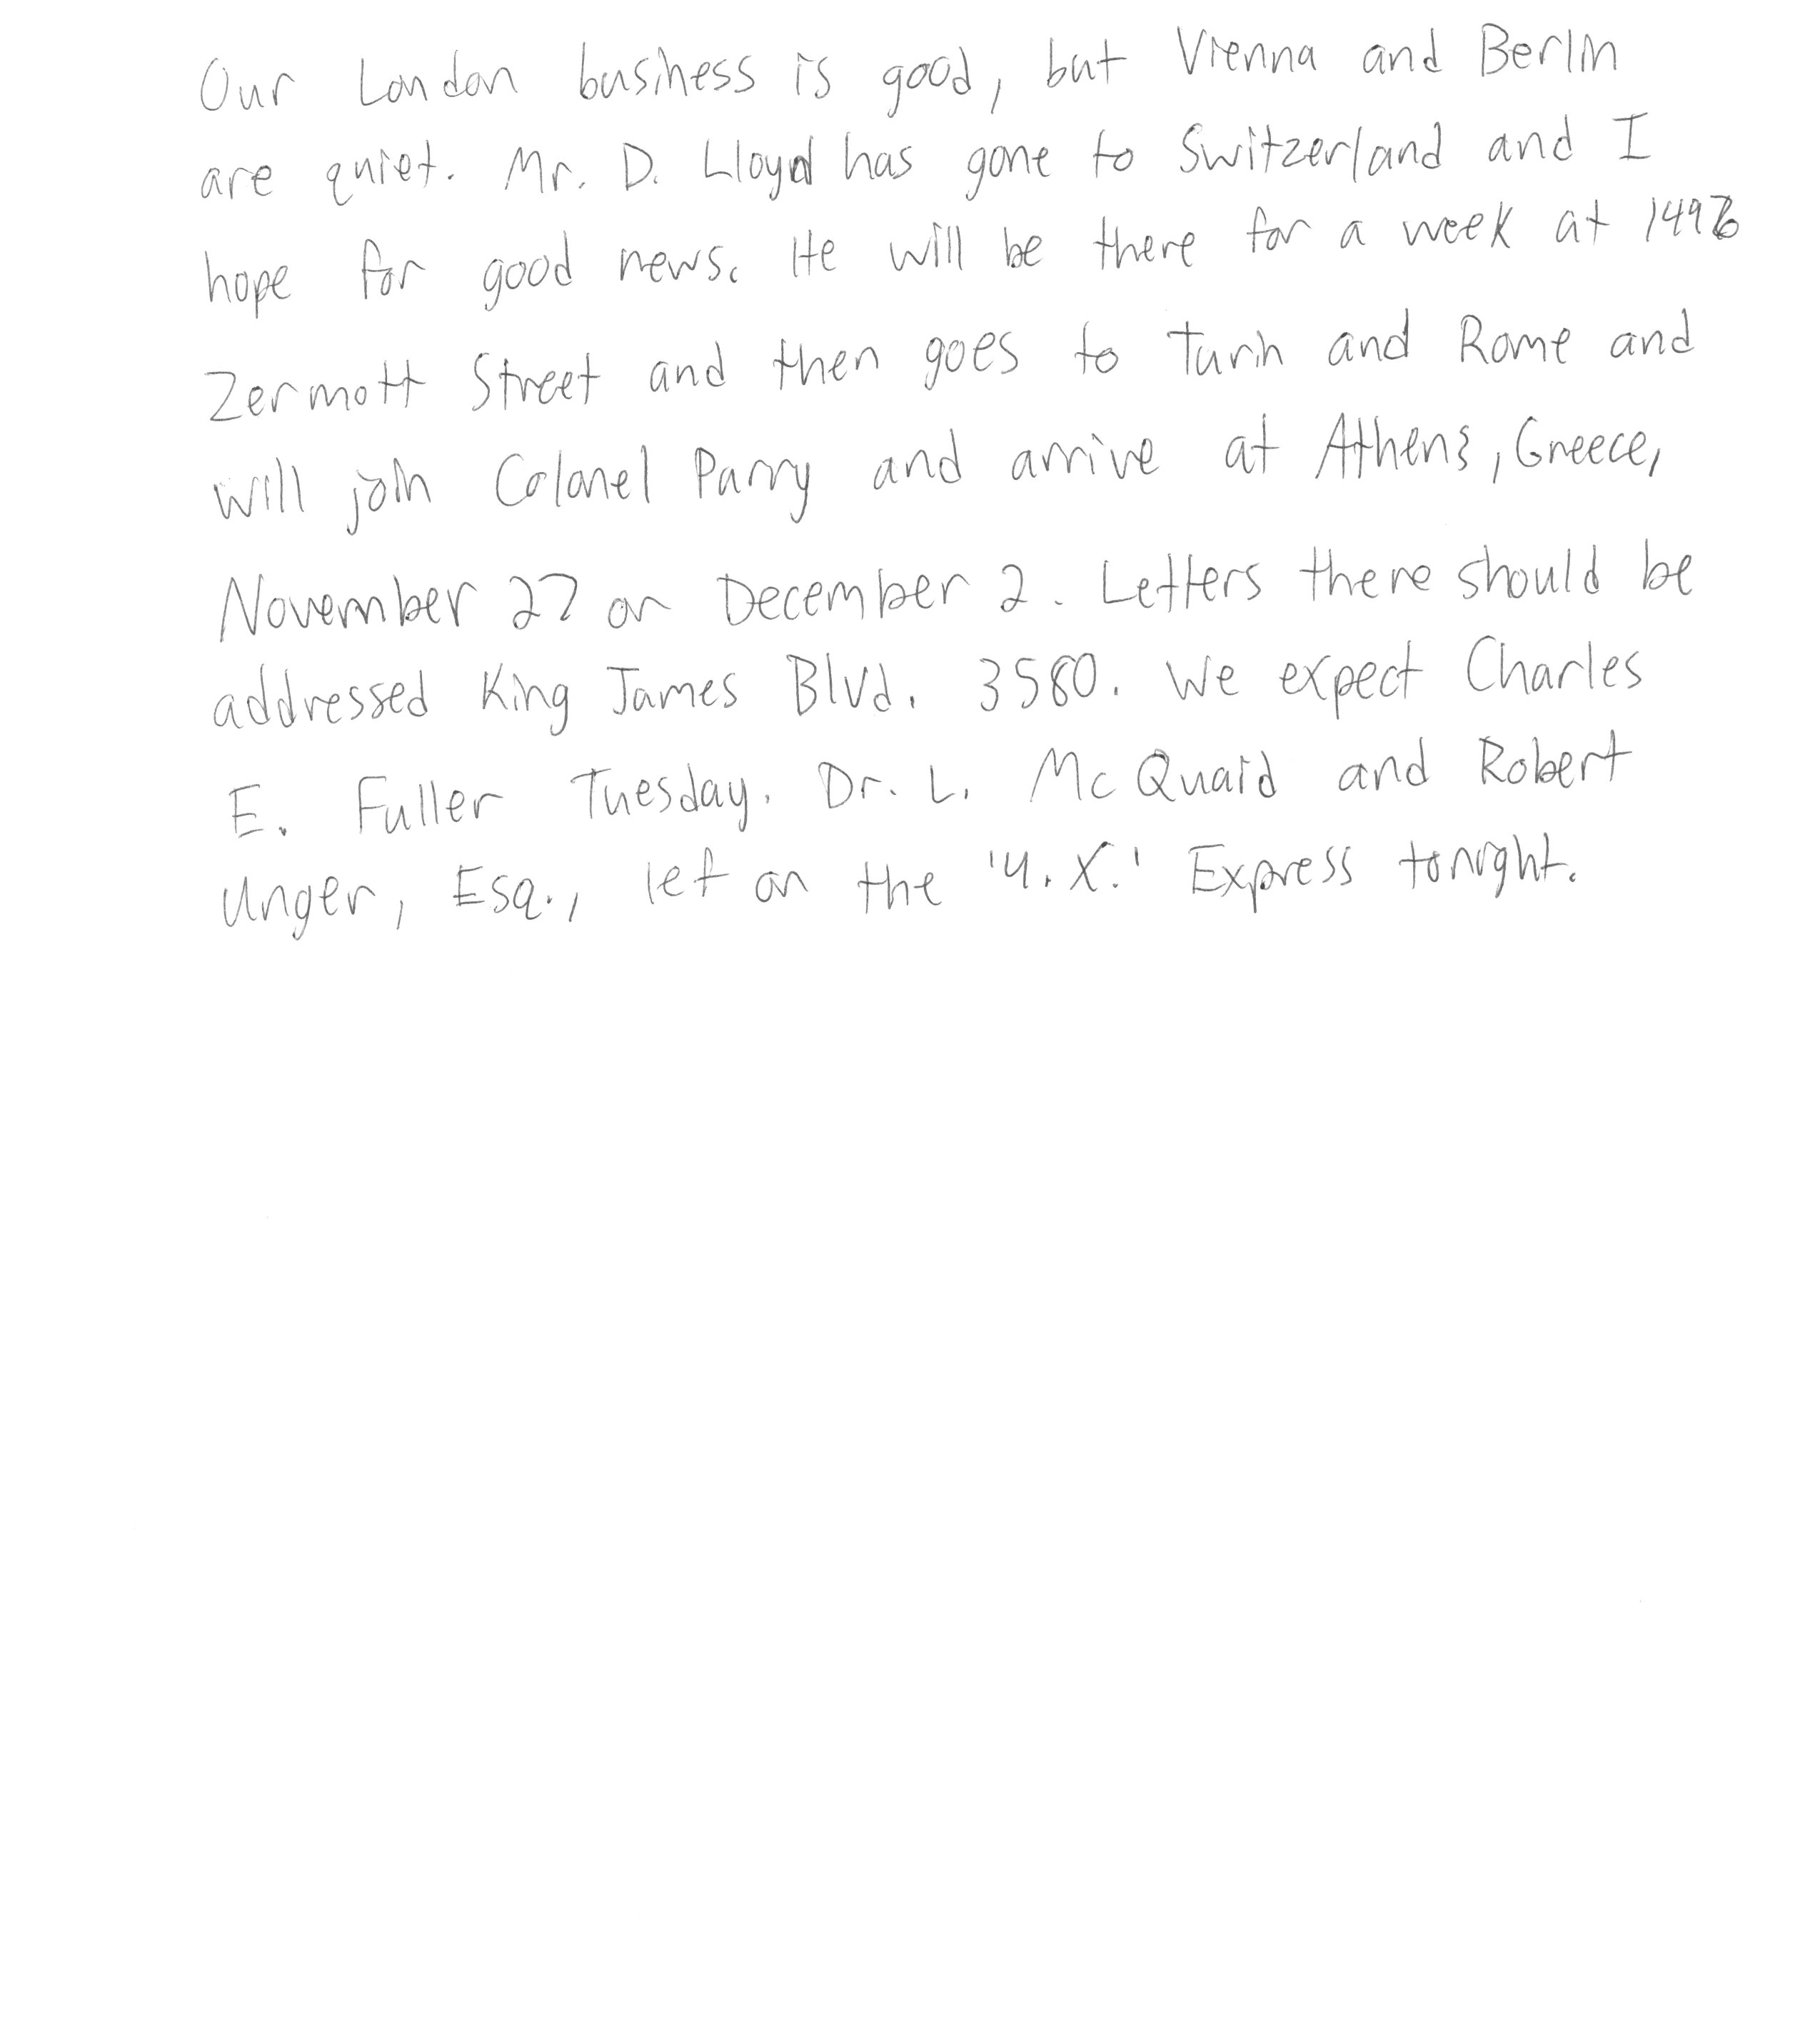 Our London business is good, but Vienna and Berlin
are quiet. Mr. D. Lloyd has gone to Switzerland and I
hope for good news. He will be there for a week at 1496
Zermott Street and then goes to Turin and Rome and
will join Colonel Parry and arrive at Athens, Greece,
November 27 or December 2. Letters there should be
addressed King James Blvd. 3580. We expect Charles
E. Fuller Tuesday. Dr. L. McQuaid and Robert
Unger, Esq., left on the 'Y.X.' Express tonight.